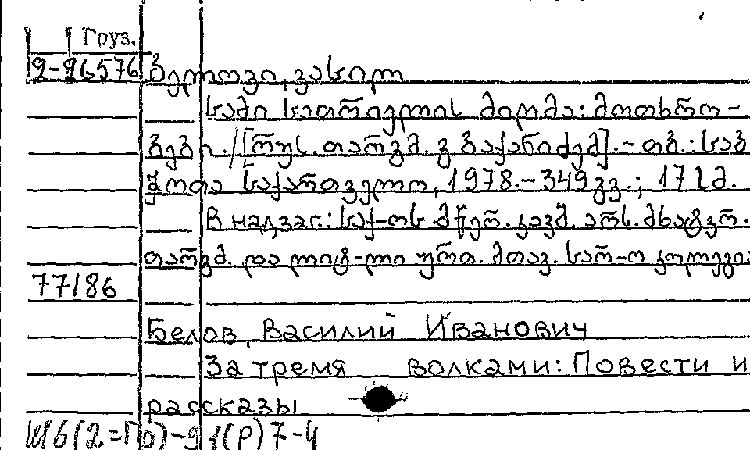 Груз.
2-26576 ბელოვი, ვასილ
სამი სათრიველის მიღმა: მოთხრო-
ბები. / [რუს. თარგმ. გ. ბაქანიძემ]. - თბ.: საბ.
საქართველო, 1978. - 349 გვ.; 17 სმ.
В надзаг.: საქ-ოს მწერ. კავშ. არს. მხატვრ.
თარგმ. და ლიტ-ლი ურთ. მთავ. სარ-ო კოლეგია
77186
Белов, Василий Иванович
За тремя волками: Повести и
рассказы
Ш6(2=Го)-9